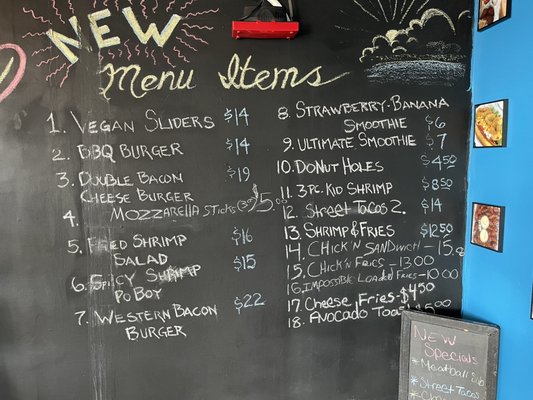 NEW NEW
Menu Items
1. Vegan Sliders $14
2. BBQ Burger $14
3. Double Bacon $19
Cheese Burger
4. Mozzarella Sticks (3)
5. Fried Shrimp $16
Salad
6. Spicy Shrimp $15
Po Boy
7. Western Bacon $22
Burger
8. Strawberry-Banana
Smoothie $6
9. Ultimate Smoothie $7
10. Donut Holes $4.50
11. 3pc. Kid Shrimp $8.50
12. Street Tacos 2. $14
13. Shrimp & Fries $12.50
14. Chick'n Sandwich - 15.
15. Chick'n Fries - 13.00
16. Impossible Loaded Fries - 10.00
17. Cheese Fries - $4.50
18. Avocado Toast
New
Specials
*Meatball Sub
*Street Tacos